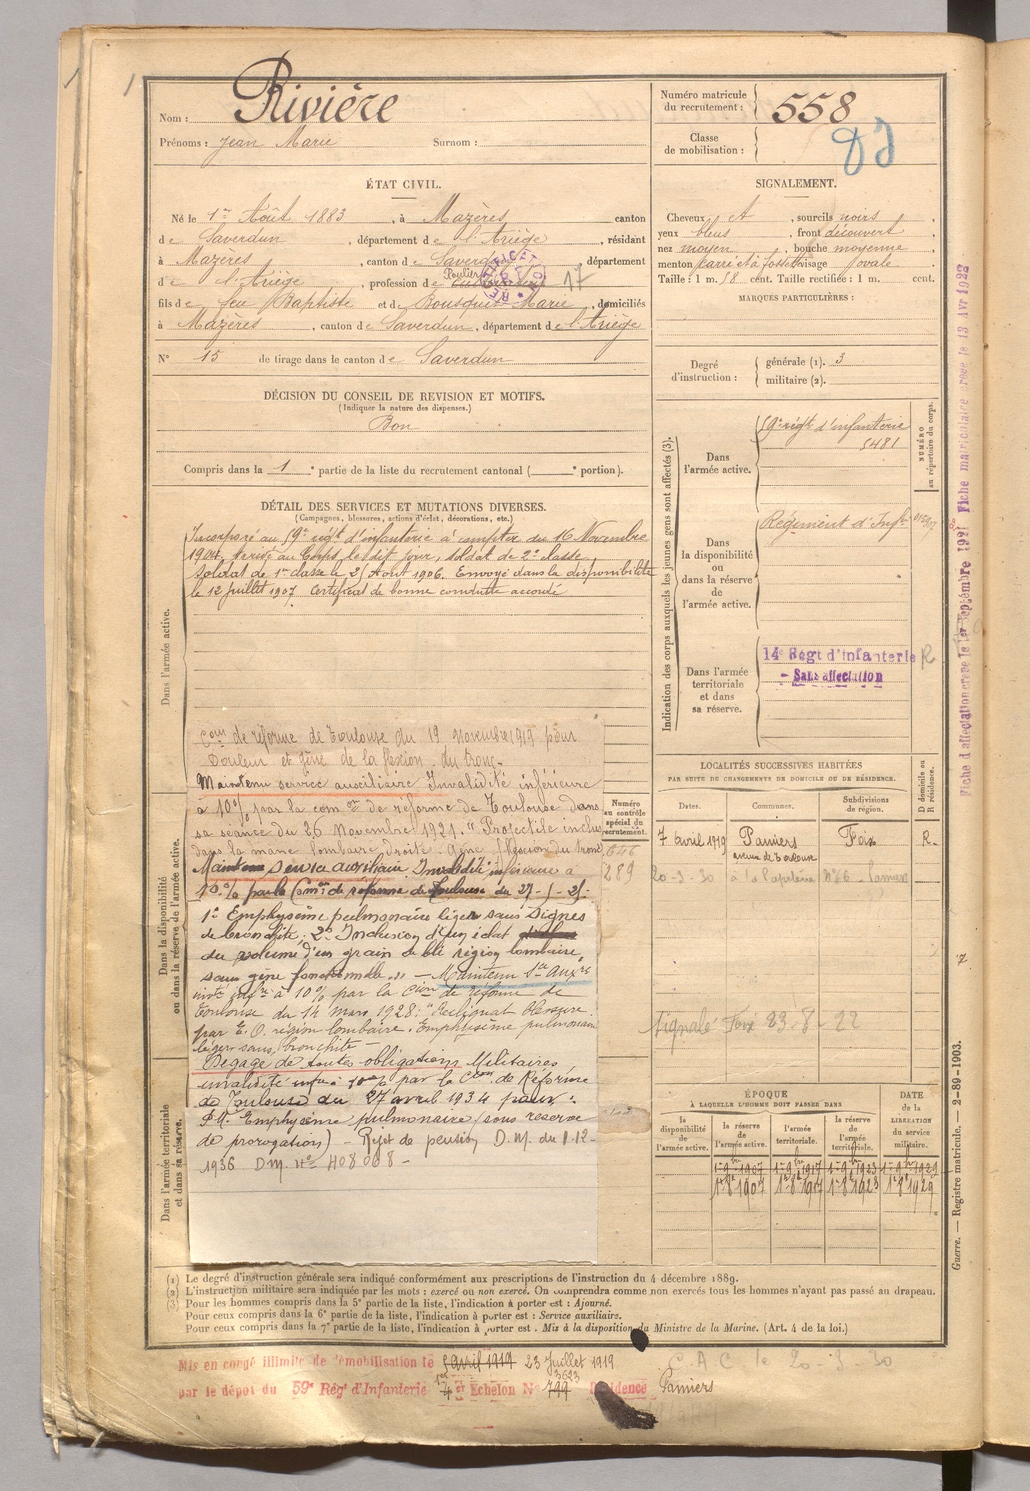 Nom : Rivière
Prénoms : Jean Marie Surnom :
Numéro matricule
du recrutement : 558
Classe
de mobilisation :
ÉTAT CIVIL.
Né le 1er Août 1883, à Mazères canton
de Saverdun, département de l'Ariège, résidant
à Mazères, canton de Saverdun, département
de l'Ariège, profession de 17
fils de feu Baptiste et de Bousquet Marie, domiciliés
à Mazères, canton de Saverdun, département de l'Ariège
N° 15 de tirage dans le canton de Saverdun
SIGNALEMENT.
Cheveux, sourcils noirs,
yeux bleus, front découvert,
nez moyen, bouche moyenne,
menton carré et à fossette visage ovale
Taille : 1 m. cent. Taille rectifiée : 1 m. cent.
MARQUES PARTICULIÈRES :
Degré
d'instruction :
générale (1). 3
militaire (2).
DÉCISION DU CONSEIL DE REVISION ET MOTIFS.
(Indiquer la nature des dispenses.)
Bon
Compris dans la 1e partie de la liste du recrutement cantonal ( e portion).
DÉTAIL DES SERVICES ET MUTATIONS DIVERSES.
(Campagnes, blessures, actions d'éclat, décorations, etc.)
Dans l'armée active.
Incorporé au régt d'infanterie à compter du 16 Novembre
1904, arrivé au Corps le dit jour, soldat de 2e classe,
soldat de 1re classe le Août 1906. Envoyé dans la disponibilité
le 12 juillet 1907 Certificat de bonne conduite accordé
Con de réforme de Toulouse du 19 Novembre 1919 pour
Douleur et gêne de la flexion du tronc-
Maintenu service auxiliaire Invalidité inférieure
à 10% par la com on de réforme de Toulouse dans
sa séance du 26 Novembre 1921. "Projectile inclus
dans la masse lombaire droite. Gêne flexion du tronc
Maintenu Service auxiliaire. Invalidité inférieure à
10% par la Comon de réforme de Toulouse du
1° Emphysème pulmonaire léger sans signes
de bronchite. 2° Inclusion d'un éclat
du volume d'un grain de blé région lombaire,
sans gêne fonctionnelle. - Maintenu Sce Auxre
par la Cion de réforme de
Toulouse du 14 mars 1928: "Reliquat blessure
par E.O. région lombaire, Emphysème pulmonaire
léger sans bronchite -
Dégagé de toutes obligations Militaires
invalidité infre à 10% par la Con de Réforme
de Toulouse du 27 avril 1934 pour :
Emphysème pulmonaire, (sous réserve
de prorogation) - Rejet de pension D.M. du 1-12-
1936 D.M. N° 408008-
Dans la disponibilité
ou dans la réserve de l'armée active.
Dans l'armée territoriale
et dans sa réserve.
Numéro
au contrôle
spécial du
recrutement.
646
289
Indication des corps auxquels les jeunes gens sont affectés (3).
Dans
l'armée active.
régt d'infanterie
5481
NUMÉRO
au répertoire du corps.
Dans
la disponibilité
ou
dans la réserve
de
l'armée active.
Régiment d'Infie
Dans l'armée
territoriale
et dans
sa réserve.
14e Régt d'infanterie
- Sans affectation
R
LOCALITÉS SUCCESSIVES HABITÉES
PAR SUITE DU CHANGEMENTS DE DOMICILE OU DE RÉSIDENCE.
Dates. Communes. Subdivisions
de région.
D domicile ou
R résidence.
7 avril 1919 Pamiers Foix R.
avenue de Toulouse
20-3-30 N° 6 - Pamiers
Signalé Foix 23-8-22
ÉPOQUE
À LAQUELLE L'HOMME DOIT PASSER DANS
la
disponibilité
de
l'armée active.
la réserve
de
l'armée active.
l'armée
territoriale.
la réserve
de
l'armée
territoriale.
DATE
de la
LIBÉRATION
du service
militaire.
1-9bre 1907 1-9bre 1917 1-9bre 1923 1-9bre 1929
1-8e 1907 1-8e 1917 1-8e 1923 1-8e 1929
Guerre. — Registre matricule. — 2-89-1903.
Fiche d'affectation créée le 1er Septembre 1921 Fiche matriculaire créée le 13 Avr 1922
(1) Le degré d'instruction générale sera indiqué conformément aux prescriptions de l'instruction du 4 décembre 1889.
(2) L'instruction militaire sera indiquée par les mots : exercé ou non exercé. On comprendra comme non exercés tous les hommes n'ayant pas passé au drapeau.
(3) Pour les hommes compris dans la 5e partie de la liste, l'indication à porter est : Ajourné.
Pour ceux compris dans la 6e partie de la liste, l'indication à porter est : Service auxiliaire.
Pour ceux compris dans la 7e partie de la liste, l'indication à porter est : Mis à la disposition du Ministre de la Marine. (Art. 4 de la loi.)
Mis en congé illimité de démobilisation le 5 avril 1919 23 Juillet 1919
par le dépôt du 59e Régt d'Infanterie Echelon N° 799 3623 Résidence Pamiers
C.A.C. le 20-3-30